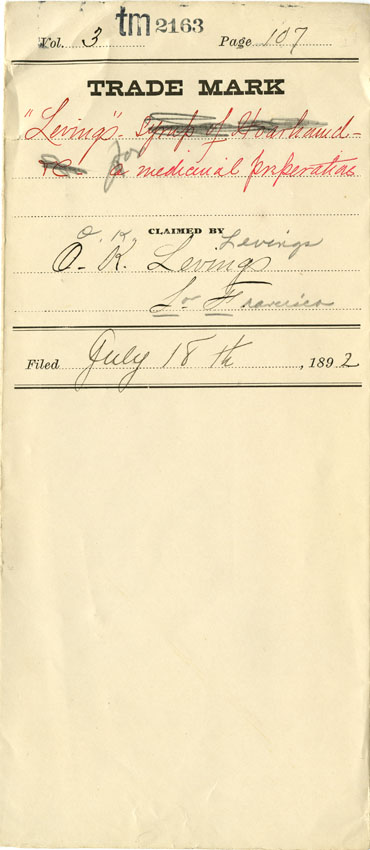 tm 2163
Vol. 3 Page 107
TRADE MARK
"Levings". Syrup of Hoarhound-
&c for a medicinal preperation
CLAIMED BY
O. K. Levings
O. K. Levings
So Francisco
Filed July 18th, 1892